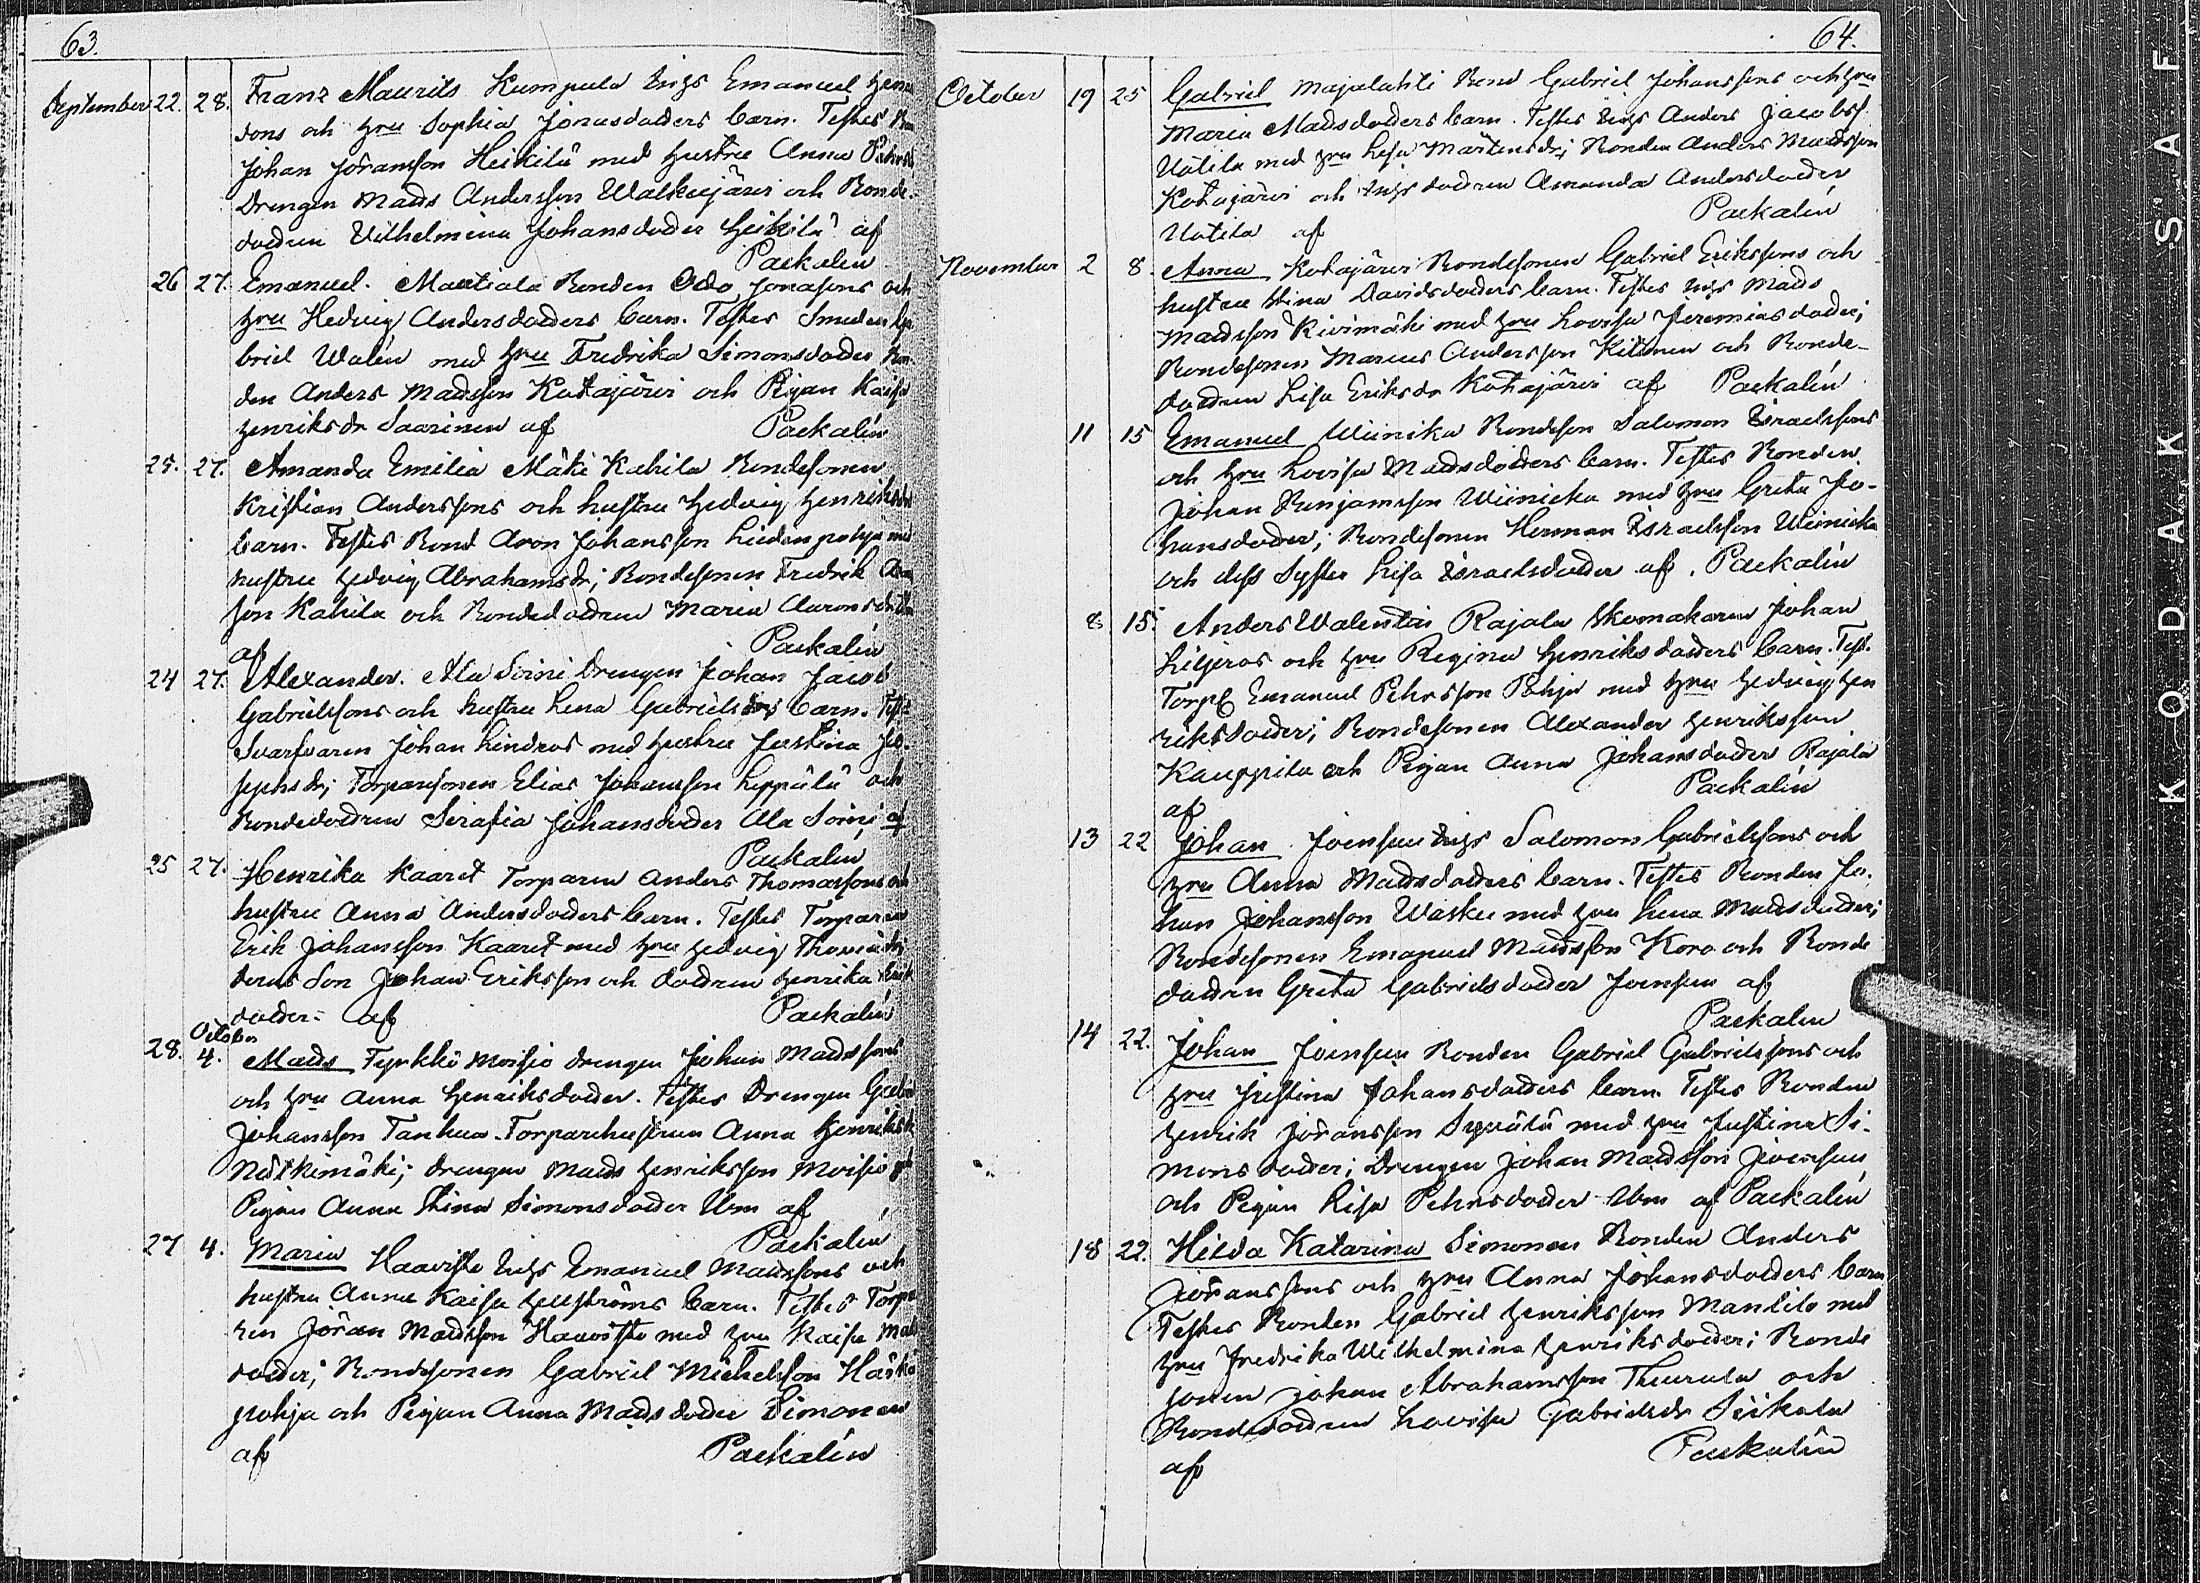 63.
September 22. 28. Franz Maurits Kumpula Ings Emanuel Hen
sons och hru Sophia Jonasdotters barn. Testes
Johan Jöransson Heikilä med hustru Anna Pehrsd
Drengen Mads Andersson Walkiajärvi och Bonde-
dottren Wilhelmina Johansdotter Heikilä af
Paekalén
26 27. Emanuel. Mattiala Bonden Odo Jonasons och
hru Hedvig Andersdotters barn. Testes Smeden Ga
briel Walén med hru Fredrika Simonsdotter Bon
den Anders Madsson Kotajärvi och Pigan Kaisa
Henriksdr Saarinen af Paekalén
25. 27. Amanda Emilia Mäki Kahila Bondesonen
Kristian Anderssons och hustru Hedvig Henriksdr
barn. Testes Bond Aron Johansson Liedenpohja med
hustru Hedvig Abrahamsdr; Bondesonen Fredrik
son Kahila och Bondedottren Maria Aaronsdotter
af Paekalén
24 27. Alexander. Ala Soini Drengen Johan Jacob
Gabrielssons och hustru Lena Gabrielsdrs barn. Test
Svarfvaren Johan Lindros med hustru Justina Jo-
sephsdr; Torparesonen Elias Johansson Leppälä och
Bondedottren Serafia Johansdotter Ala Soini af
Paekalén
25 27. Henrika Kaaret Torparen Anders Thomassons och
hustru Anna Andersdotters barn. Testes Torparen
Erik Johansson Kaaret med hru Hedvig Thomasdr;
deras Son Johan Eriksson och dottren Henrika Erik
dotter. af Paekalén
October
28. 4. Mads Tyrkkö Moisio drengen Johan Madssons
och hru Anna Henriksdotter. Testes Drengen Gabr
Johansson Tankua. Torparehustrun Anna Henriksdr
Nätkimäki; drengen Mads Henriksson Moisio och
Pigan Anna Stina Simonsdotter Ibm af
Paekalén
27 4. Maria Haavisto Ings Emanuel Madssons och
hustru Anna Kaisa Hellströms barn. Testes Torpa
ren Jöran Madsson Haavisto med hru Kaisa Mads
dotter; Bondesonen Gabriel Michelsson Harka
pohja och Pigan Anna Madsdotter Simonen
af Paekalén
64.
October 19 25 Gabriel Majalahti Bond Gabriel Johanssons och hru
Maria Madsdotters barn. Testes Ings Anders Jacobss.
Uotila med hru Lisa Mårtensdr; Bonden Anders Madsson
Kotajärvi och Ings dottren Amanda Andersdotter
Uotila af Paekalén
November 2 8. Anna Kotajärvi Bondesonen Gabriel Erikssons och
hustru Stina Davidsdotters barn. Testes Ings Mads
Madsson Kivimäki med hru Lovisa Jeremiasdotter;
Bondesonen Marcus Andersson Kitonen och Bonde-
dottren Lisa Eriksdr Kotajärvi af Paekalén
11 15 Emanuel Wiinika Bondeson Salomon Israelssons
och hru Lovisa Madsdotters barn. Testes Bonden
Johan Benjamsson Wiinicka med hru Greta Jo-
hansdotter; Bondesonen Herman Israelsson Wiinicka
och dess Syster Lisa Israelsdotter af. Paekalén
8 15. Anders Walentin Rajala Skomakaren Johan
Liljeros och hru Regina Henriksdotters barn. Test.
Torp Emanuel Pehrsson Pohja med hru Hedvig Hen
riksdotter; Bondesonen Alexander Henriksson
Kauppila och Pigan Anna Johansdotter Rajala
af Paekalén
13 22 Johan Joensuu Ings Salomon Gabrielssons och
hru Anna Madsdotters barn. Testes Bonden Jo-
han Johansson Wasku med hru Lena Madsdotter;
Bondesonen Emanuel Madsson Koro och Bonde
dottren Greta Gabrielsdotter Joensuu af
Paekalén
14 22. Johan Joensuu Bonden Gabriel Gabrielssons och
hru Justina Johansdotters barn Testes Bonden
Henrik Jöransson Syvälä med hru Justina Si-
monsdotter; Drengen Johan Madsson Joensuu
och Pigan Lisa Pehrsdotter Ibm af Paekalén
18 22. Hilda Katarina Simonen Bonden Anders
Jöranssons och hru Anna Johansdotters barn
Testes Bonden Gabriel Henriksson Mantila med
hru Fredrika Wilhelmina Henriksdotter; Bonde
sonen Johan Abrahamsson Thurula och
Bondedottren Lovisa Gabrielsdr Seikala
af Paekalén
KODAK SAFE